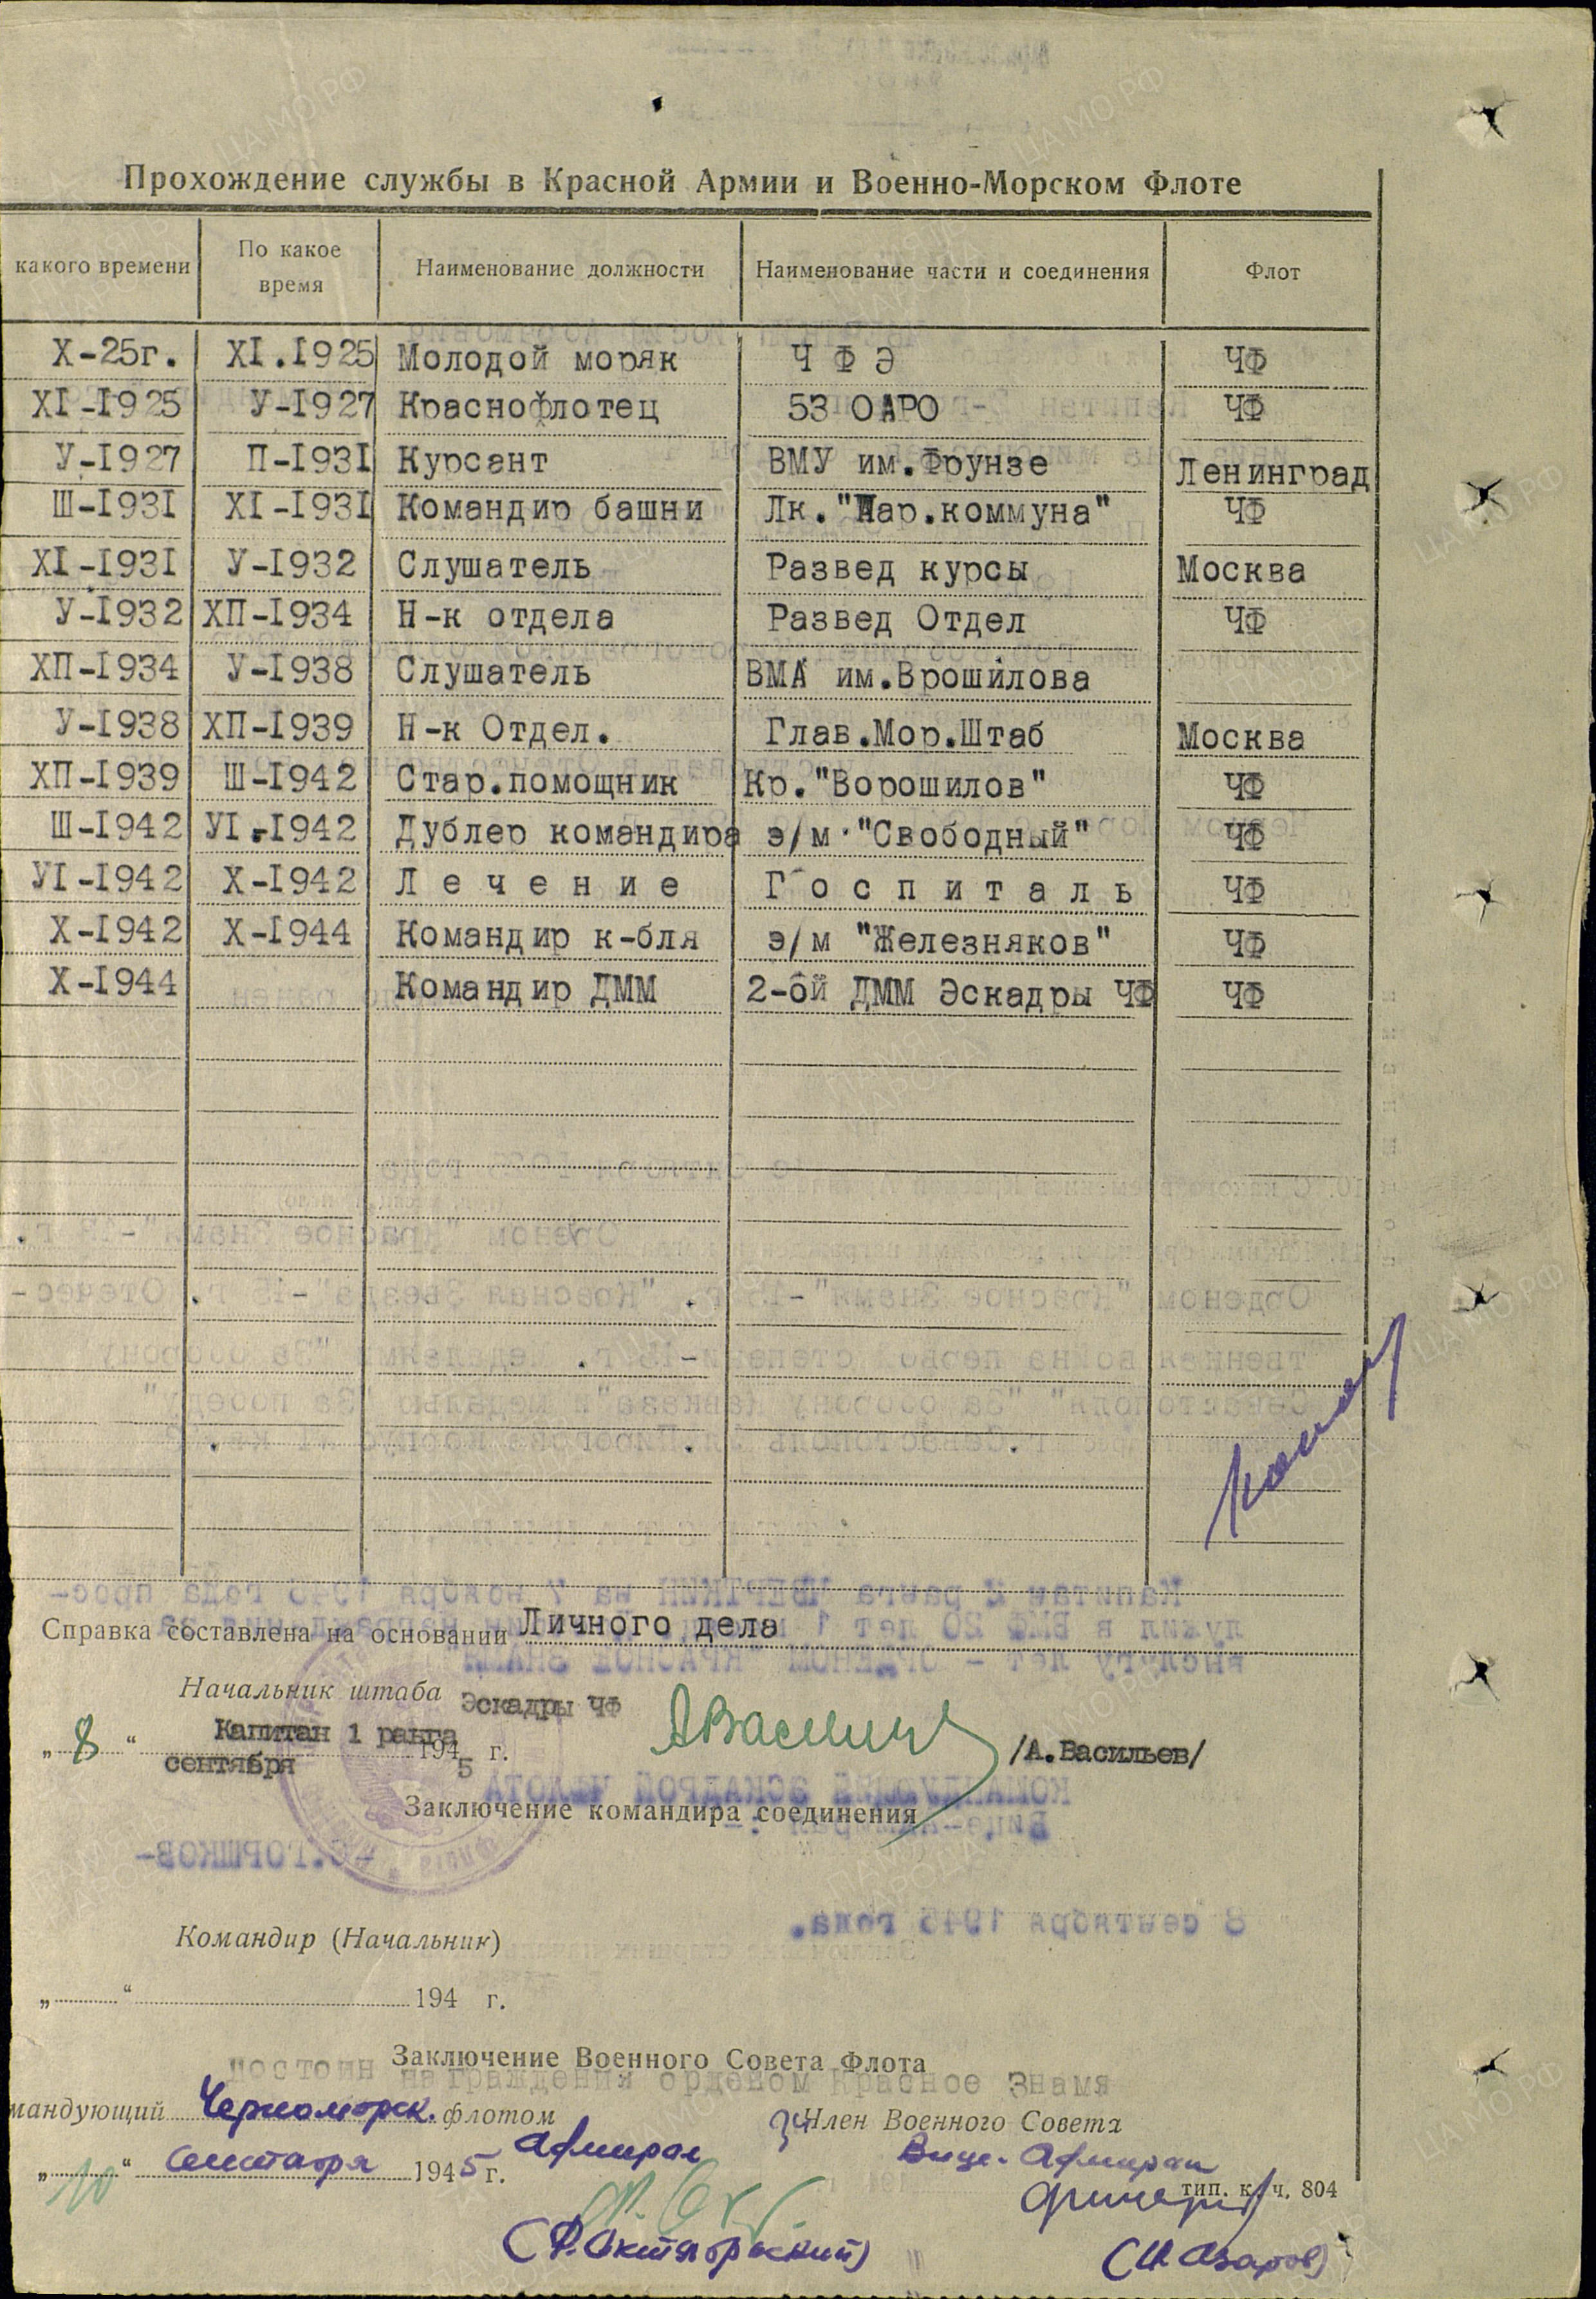 Прохождение службы в Красной Армии и Военно-Морском Флоте
какого времени | По какое время | Наименование должности | Наименование части и соединения | Флот
X-25г. | XI.I925 | Молодой моряк | Ч Ф Э | ЧФ
XI-I925 | У-I927 | Краснофлотец | 53 ОАРО | ЧФ
У-I927 | П-I93I | Курсант | ВМУ им.Фрунзе | Ленинград
Ш-I93I | XI-I93I | Командир башни | Лк."Пар.коммуна" | ЧФ
XI-I93I | У-I932 | Слушатель | Развед курсы | Москва
У-I932 | ХП-I934 | Н-к отдела | Развед Отдел | ЧФ
ХП-I934 | У-I938 | Слушатель | ВМА им.Врошилова
У-I938 | ХП-I939 | Н-к Отдел. | Глав.Мор.Штаб | Москва
ХП-I939 | Ш-I942 | Стар.помощник | Кр."Ворошилов" | ЧФ
Ш-I942 | УI.-I942 | Дублер командира | э/м "Свободный" | ЧФ
УI-I942 | X-I942 | Л е ч е н и е | Г о с п и т а л ь | ЧФ
X-I942 | X-I944 | Командир к-бля | э/м "Железняков" | ЧФ
X-I944 | Командир ДММ | 2-ой ДММ Эскадры ЧФ | ЧФ
Справка составлена на основании Личного дела
Начальник штаба Эскадры ЧФ
Капитан 1 ранга
„ 8 “ сентября 1945 г. АВасильев /А.Васильев/
Заключение командира соединения
Командир (Начальник)
„ “ 194 г.
Заключение Военного Совета Флота
достоин награждения орденом Красное Знамя
мандующий Черноморск. флотом
Член Военного Совета
Адмирал
Вице-Адмирал
„ 10 “ сентября 1945 г.
тип. к. ч. 804
(Ф. Октябрьский)
(И Азаров)